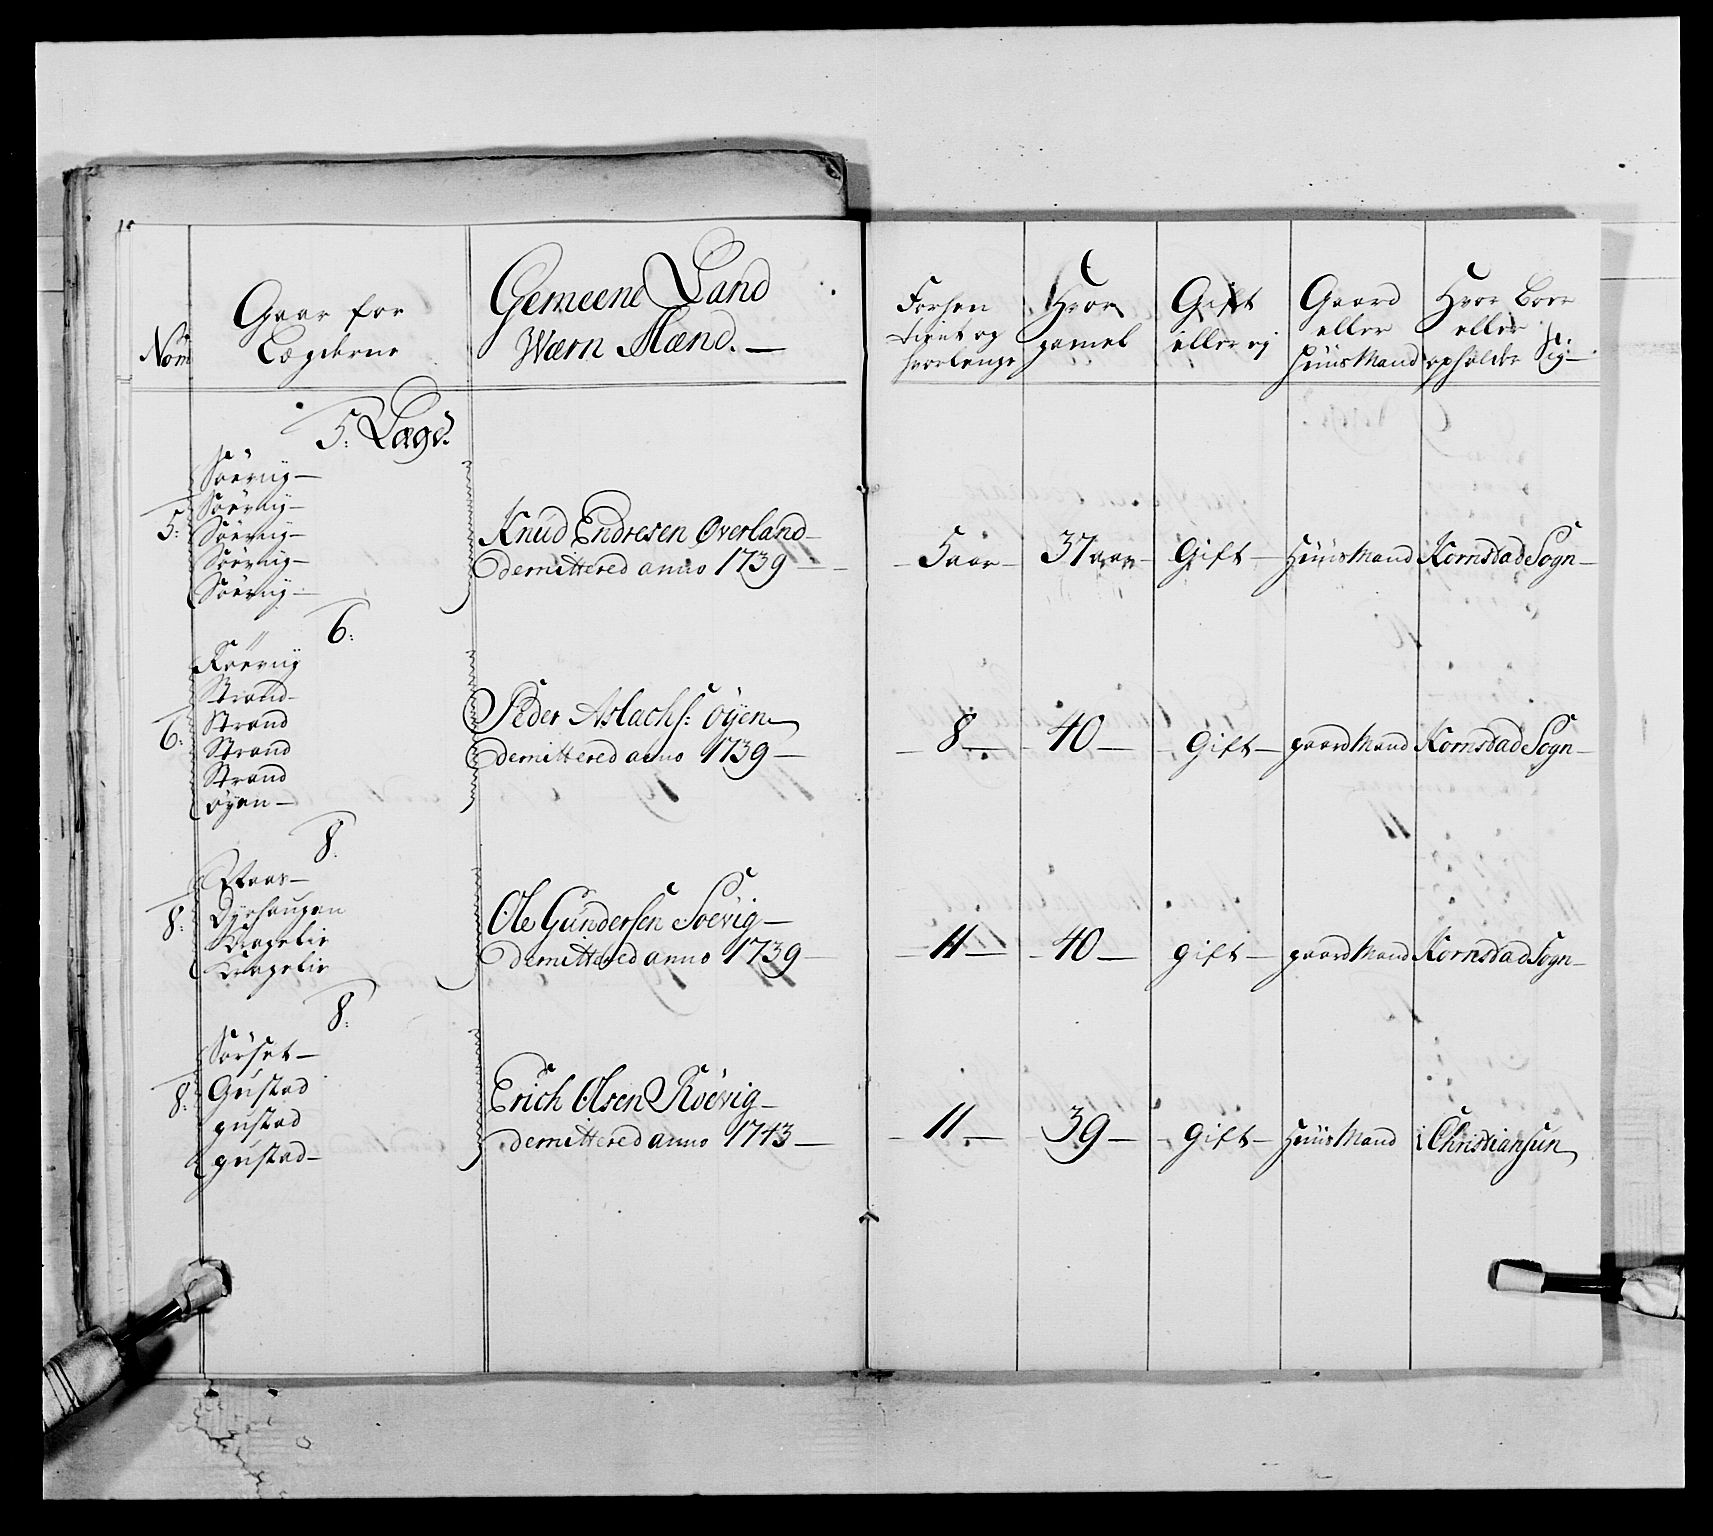 Nom
Gaar for
Lægderne
Gemeene Land
Wærn Mænd. —
Forhen
tient og
hvorlenge
Hvor
gamel
Gift
eller ej
Gaard
eller
Huus Mand
Hvor Boer
eller
opholder Sig —
5: Lægd.
Söevig —
Söevig —
5: Söevig —
Söevig —
Söevig —
Knud Endresen Øverland —
demittered anno 1739 —
— 5 aar — 37 aar — Gift — Huus Mand Kornstad Sogn —
6:
Röevig
Strand —
6: Strand
Strand
Strand
Øyen —
Peder Aslachs: Øyen
demittered anno 1739 —
— 8 — 40 — Gift — gaard Mand Kornstad Sogn —
8.
Staas —
8: Dyrhaugen
Wagelie
Wagelie
Ole Gundersen Soevig —
demittered anno 1739 —
— 11 — 40 — gift — gaard Mand Kornstad Sogn —
8:
Sörset —
8: Gustad
gustad
gustad —
Erich Olsen Röevig —
demittered anno 1743 —
— 11. — 39 — gift — Huus Mand i Christiansun